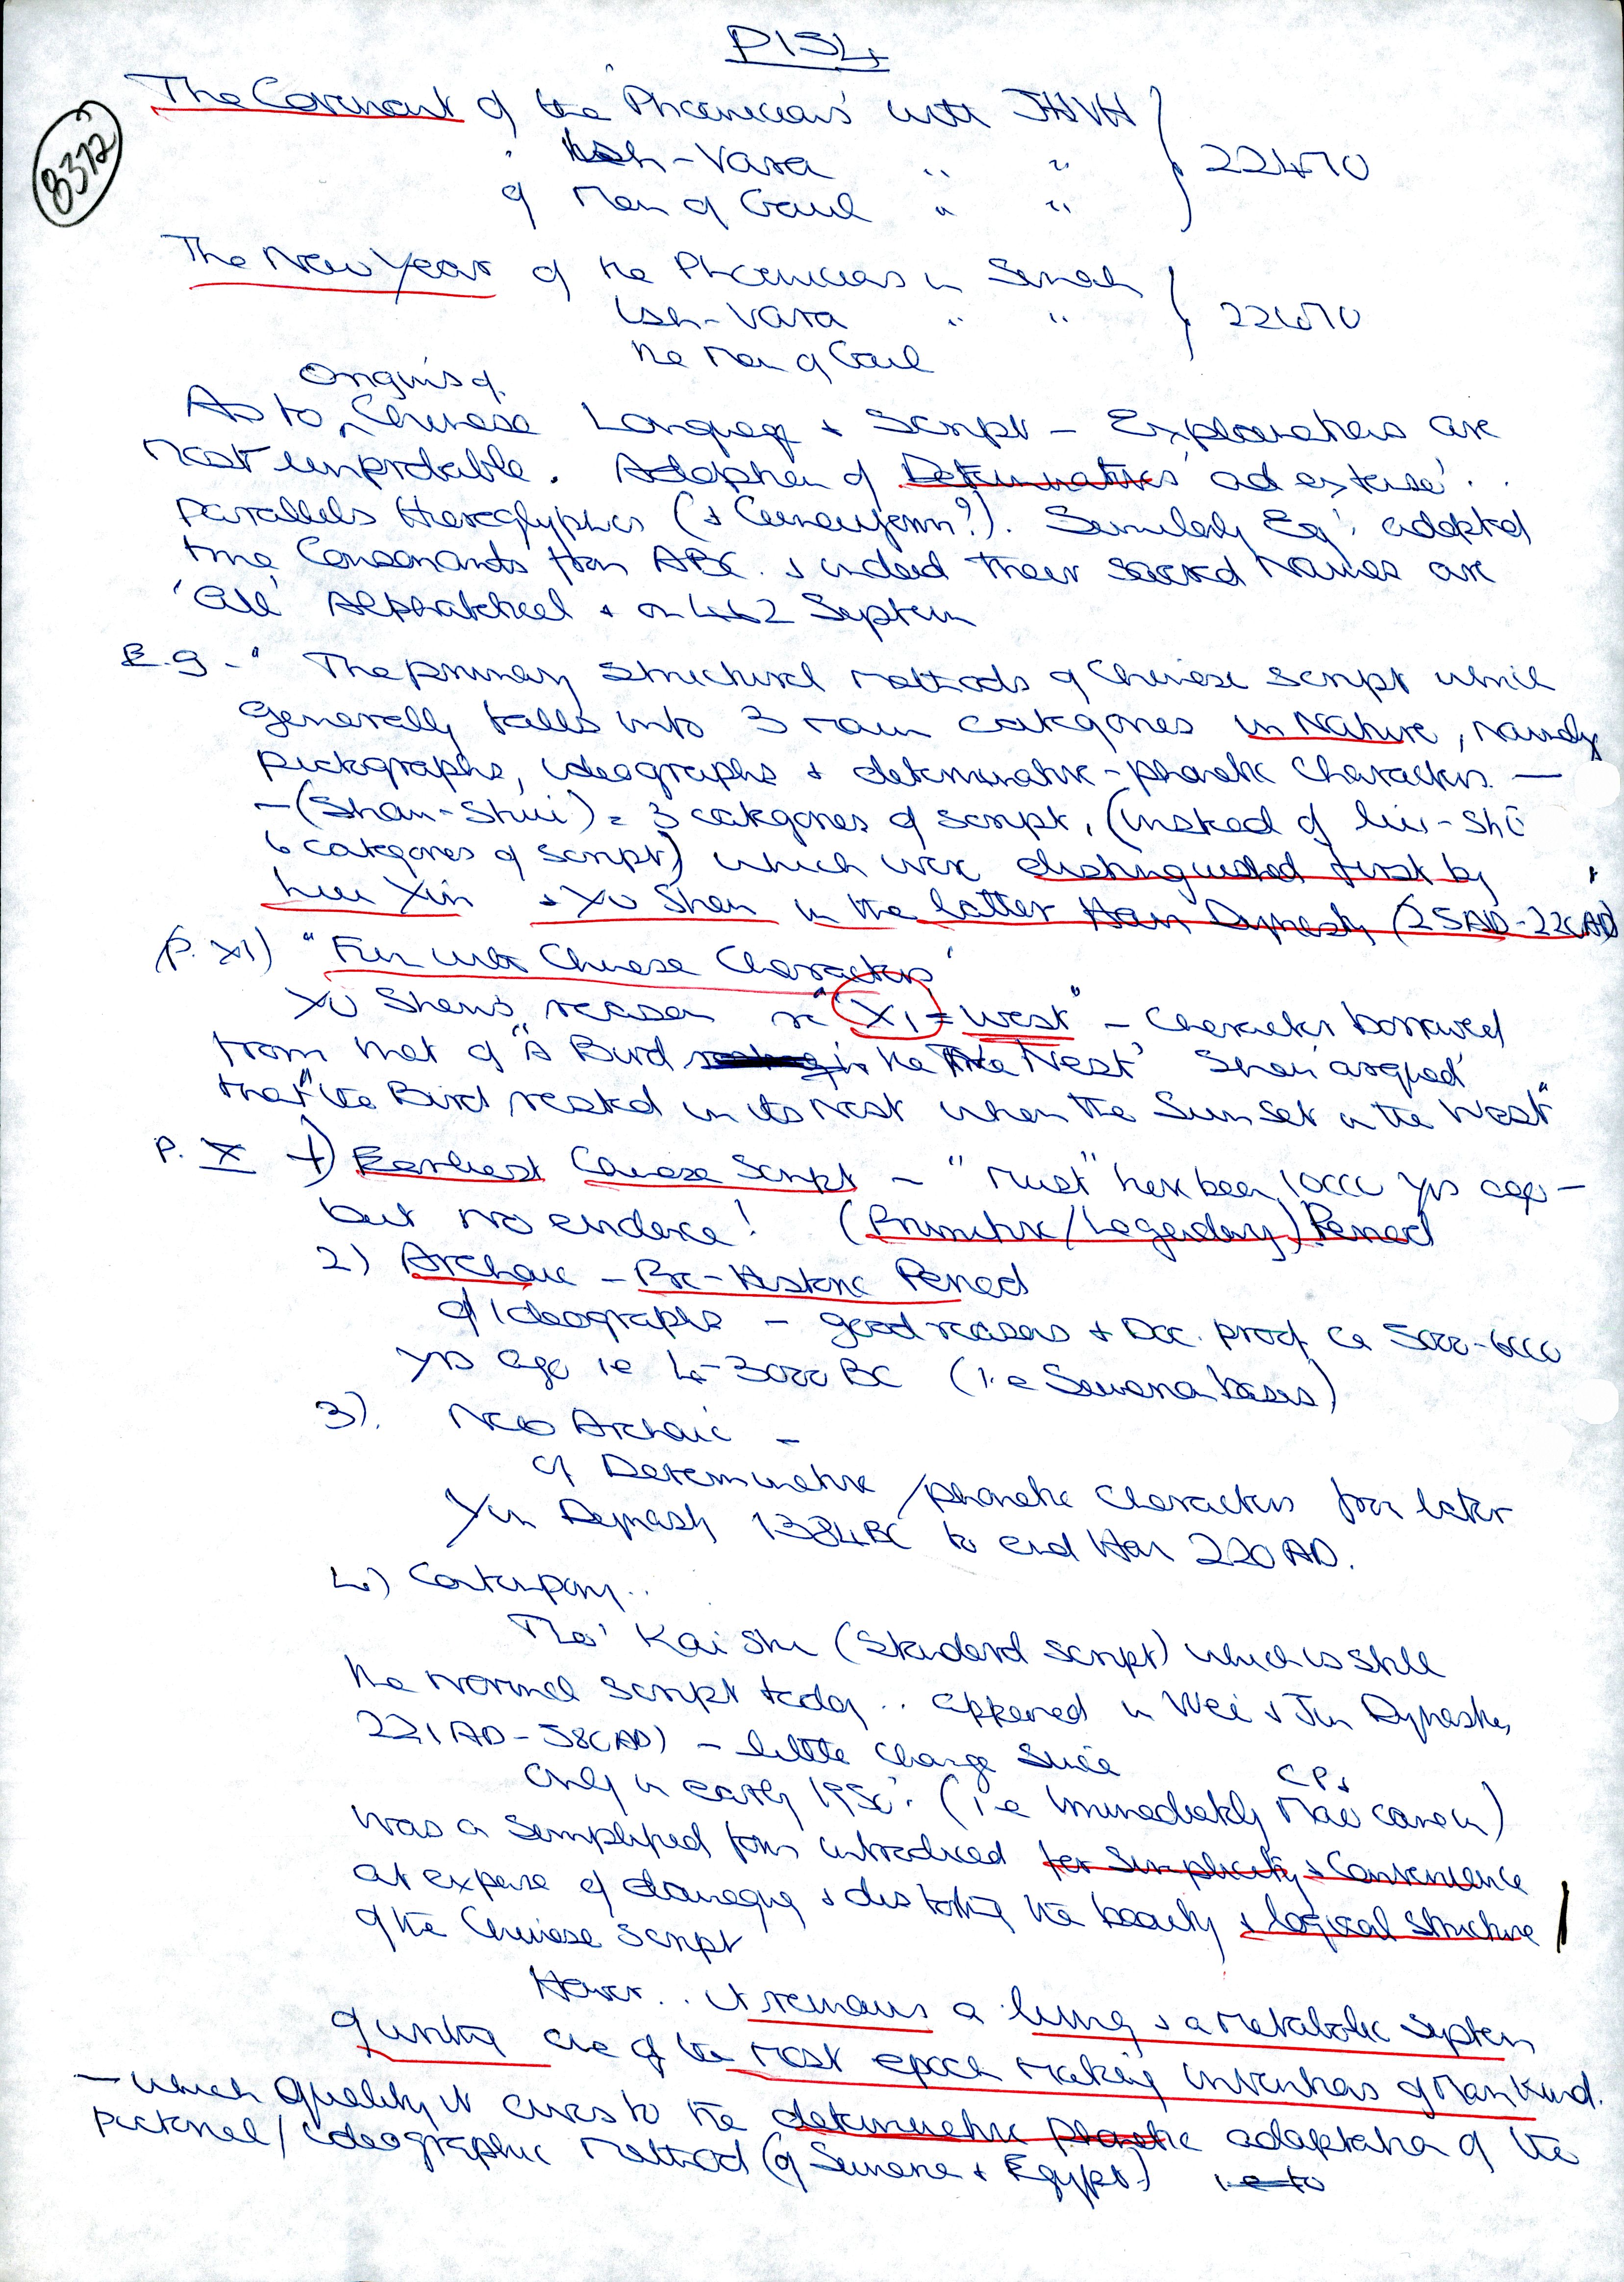 P154
8372
The Covenant of the 'Phoenicians' with JHVH
" Ish-Vara " "
of Men of Gaul " "
22470
The New Year of the Phoenicians in
Ish-Vara " "
the Men of Gaul
22470
Origins of
As to Chinese Language + Script - Explanations are
most improbable. Adoption of Determinatives ad extense'..
parallels Hieroglyphics (+ Cuneiform?). Similarly Eg: adopted
the Consonants from ABC. + indeed their sacred Names are
'all' Alphabetical + on System
E.g - " The primary structural methods of Chinese script which
generally falls into 3 main categories in Nature, namely
pictographs, ideographs + determinative-phonetic characters. -
- (Shan-Shui) = 3 categories of script, (instead of liu-shu
6 categories of script) which were distinguished first by
Liu Xin + Xu Shen in the latter Han Dynasty (25AD-220AD)
(P. XI) "Fun with Chinese Characters'
Xu Shen's reason re "Xi = West" - Character borrowed
from that of "A Bird in the Nest' Shen argued
that "the Bird rested in its nest when the Sun set in the West"
P. X 1) Earliest Chinese Script - "Must" have been 10000 yrs ago -
but no evidence! (Primitive/Legendary) Period
2) Archaic - Pre-Historic Period
of Ideographs - good reasons + Doc. proof ca 5000-6000
yrs ago ie 4-3000 BC (i.e Sumerian basis)
3). Neo Archaic -
of Determinative/phonetic characters from later
Yin Dynasty 1384BC to end Han 220 AD.
4) Contempory..
The' Kai Shu (Standard script) which is still
the normal script today.. appeared in Wei + Jin Dynasties
221AD-580AD) - little change since
CP+
Only in early 1950's (i.e Immediately Mao came in)
was a simplified form introduced for simplicity + Convenience
at expense of damaging + distorting the beauty + logical structure
of the Chinese script
However.. it remains a living + a metabolic system
of writing one of the most epoch making inventions of Mankind.
- which quality it owes to the determinative phonetic adaptation of the
pictorial/ideographic method (of Sumeria + Egypt) i.e to